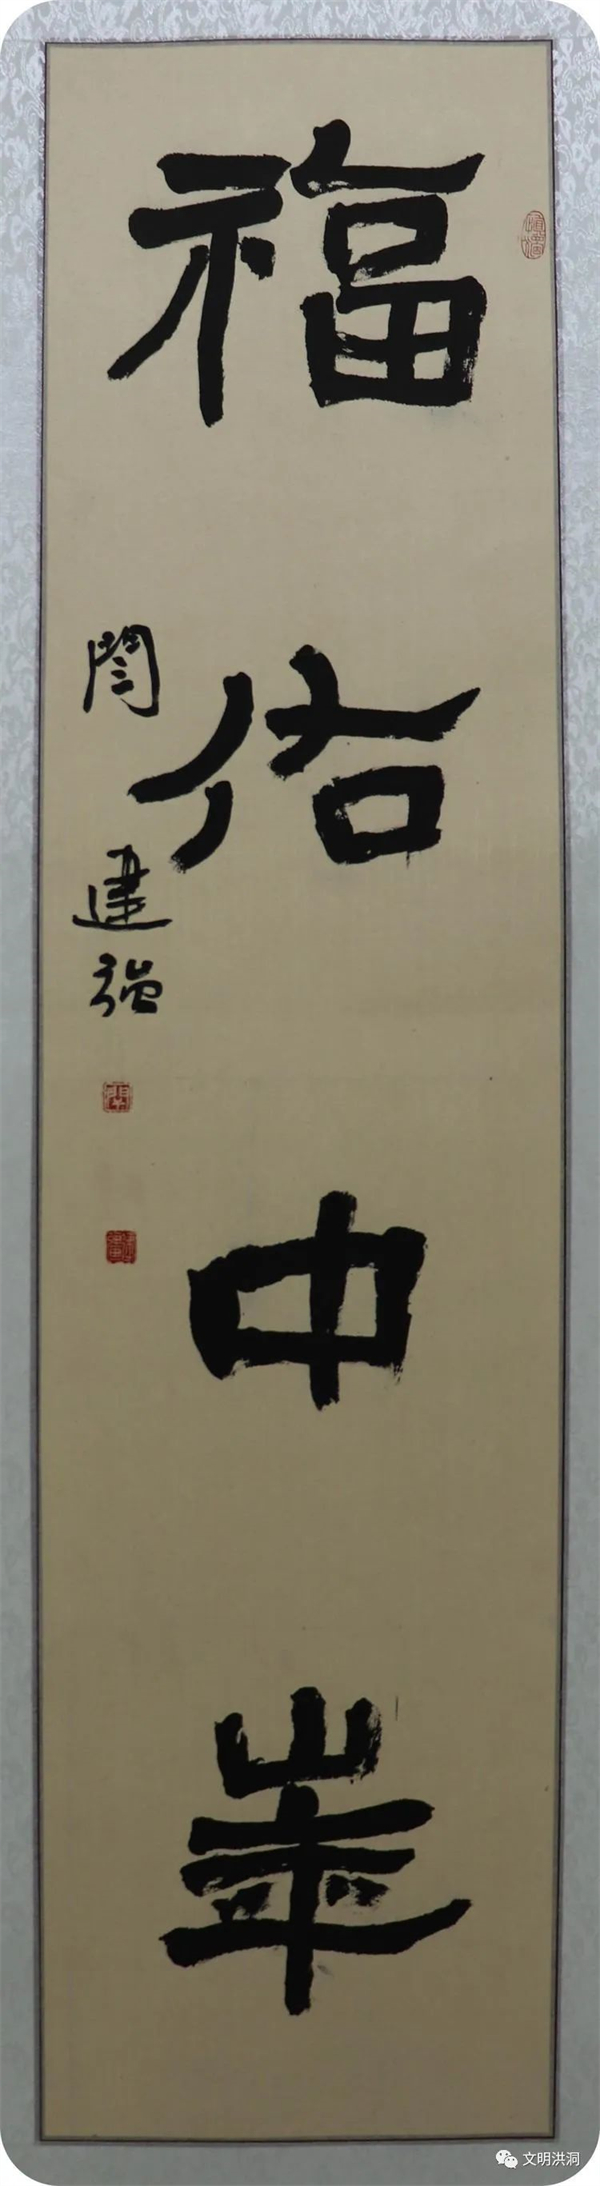 福佑中華
閆建强
文明洪洞